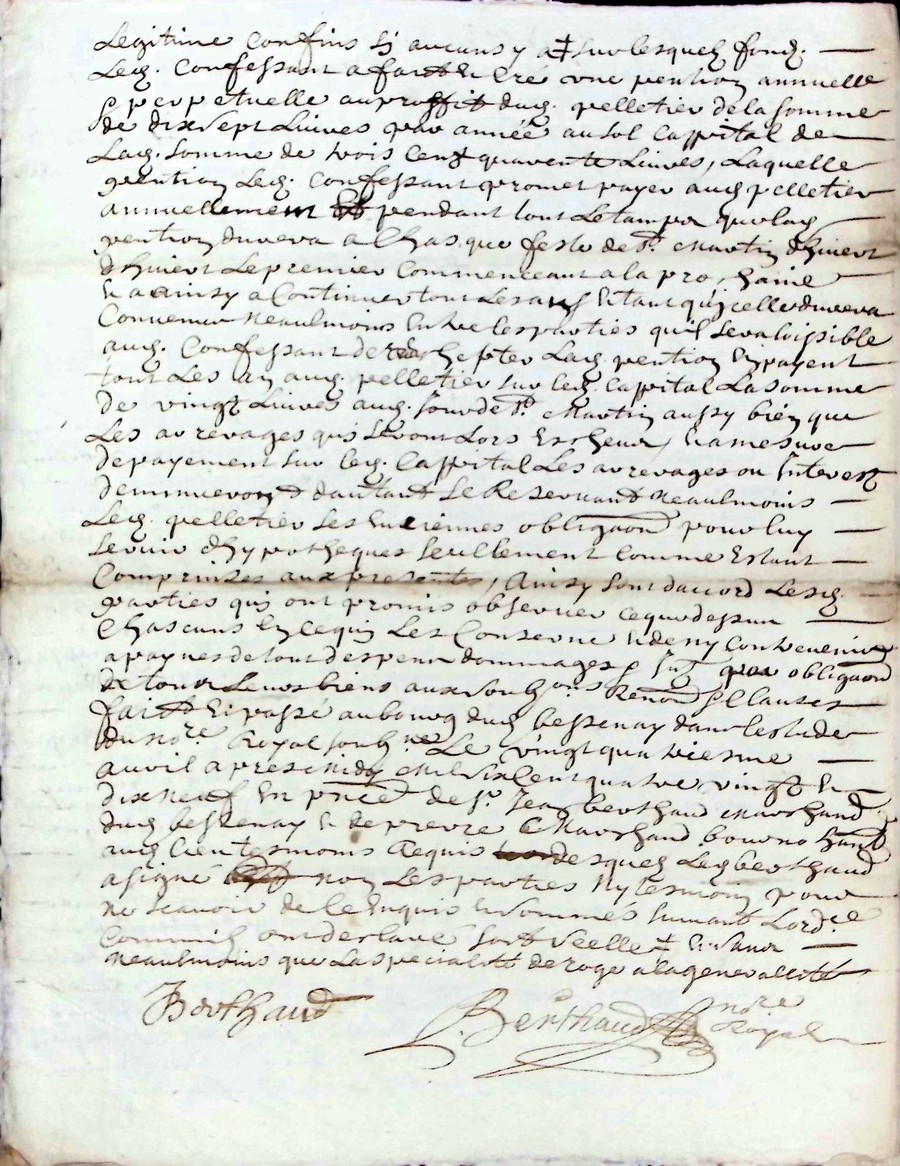 Legitime confins sj aucuns y a ‡ sur lesquelz fondz
Led. Confessant a faict Et Cré une pention annuelle
& perpetuelle au proffit dud. pelletier de la somme
de dix sept Livres par année au sol Cappital de
Lad. somme de trois Cent quarente Livres, Laquelle
pention Led. Confessant promet payer aud pelletier
annuellement pendant tout Le tamps que lad
pention durera a Chasque feste de St. Martin dhivert
dhivert Le premier Commenceant a la prochaine
Et ainsy a Continuer tous Les ans Et tant qu'jcelle durera
Convenu Neaulmoins Entre les parties quil sera loissible
aud. Confessant de rachepter Lad. pention En payent
tout Les an aud. pelletier sur led. Capital La somme
de vingt Livres aud. Jour de St. Martin aussy bien que
Les arrerages quj seront Lors Escheux, Et a mesure
de payement sur led. Cappital Les arrerages ou Interest
deminueront dautant Se Reservant Neaulmoins
Led. pelletier Les Enciennes obligaons pour luy
servir d'hypotheques seullement Comme Estant
Comprinses aux presentes, Ainsy sont daccord Lesd.
parties quj ont promis observer ce que dessus
Chascuns En ce quj Les Conserne Et de ny Contrevenir
a paynes de tous despens dommages & Intz par obligaon
de tous Leurs biens aux soubzons Renons & Clauses
faict Et passé au bourg dud bessenay dans lestude
du nore Royal soubzné Le vingt quatriesme
avril apres midy Mil six Cent quatre vingt Et
dix Neuf En pnce de Sr. Jean berthaud Marchand
dud bessenay Et de pierre Marchand
aud lieu tesmoins Requis desquelz Led berthaud
a signé non Les parties Ny tesmoins pour
ne scavoir de ce Enquis Et sommés suivant Lordce
Commis ont declaré ‡ Et sans
Neaulmoins que La specialitté deroge a la generallitté
Berthaud
Berthaud nore
Royal